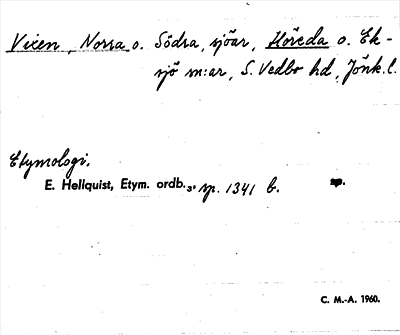 Vixen, Norra o. Södra, sjöar, Höreda o. Ek-
sjö m:ar, S. Vedbo hd, Jönk. l.
Etymologi.
E. Hellquist, Etym. ordb.3, sp. 1341 b.
C. M.-A. 1960.